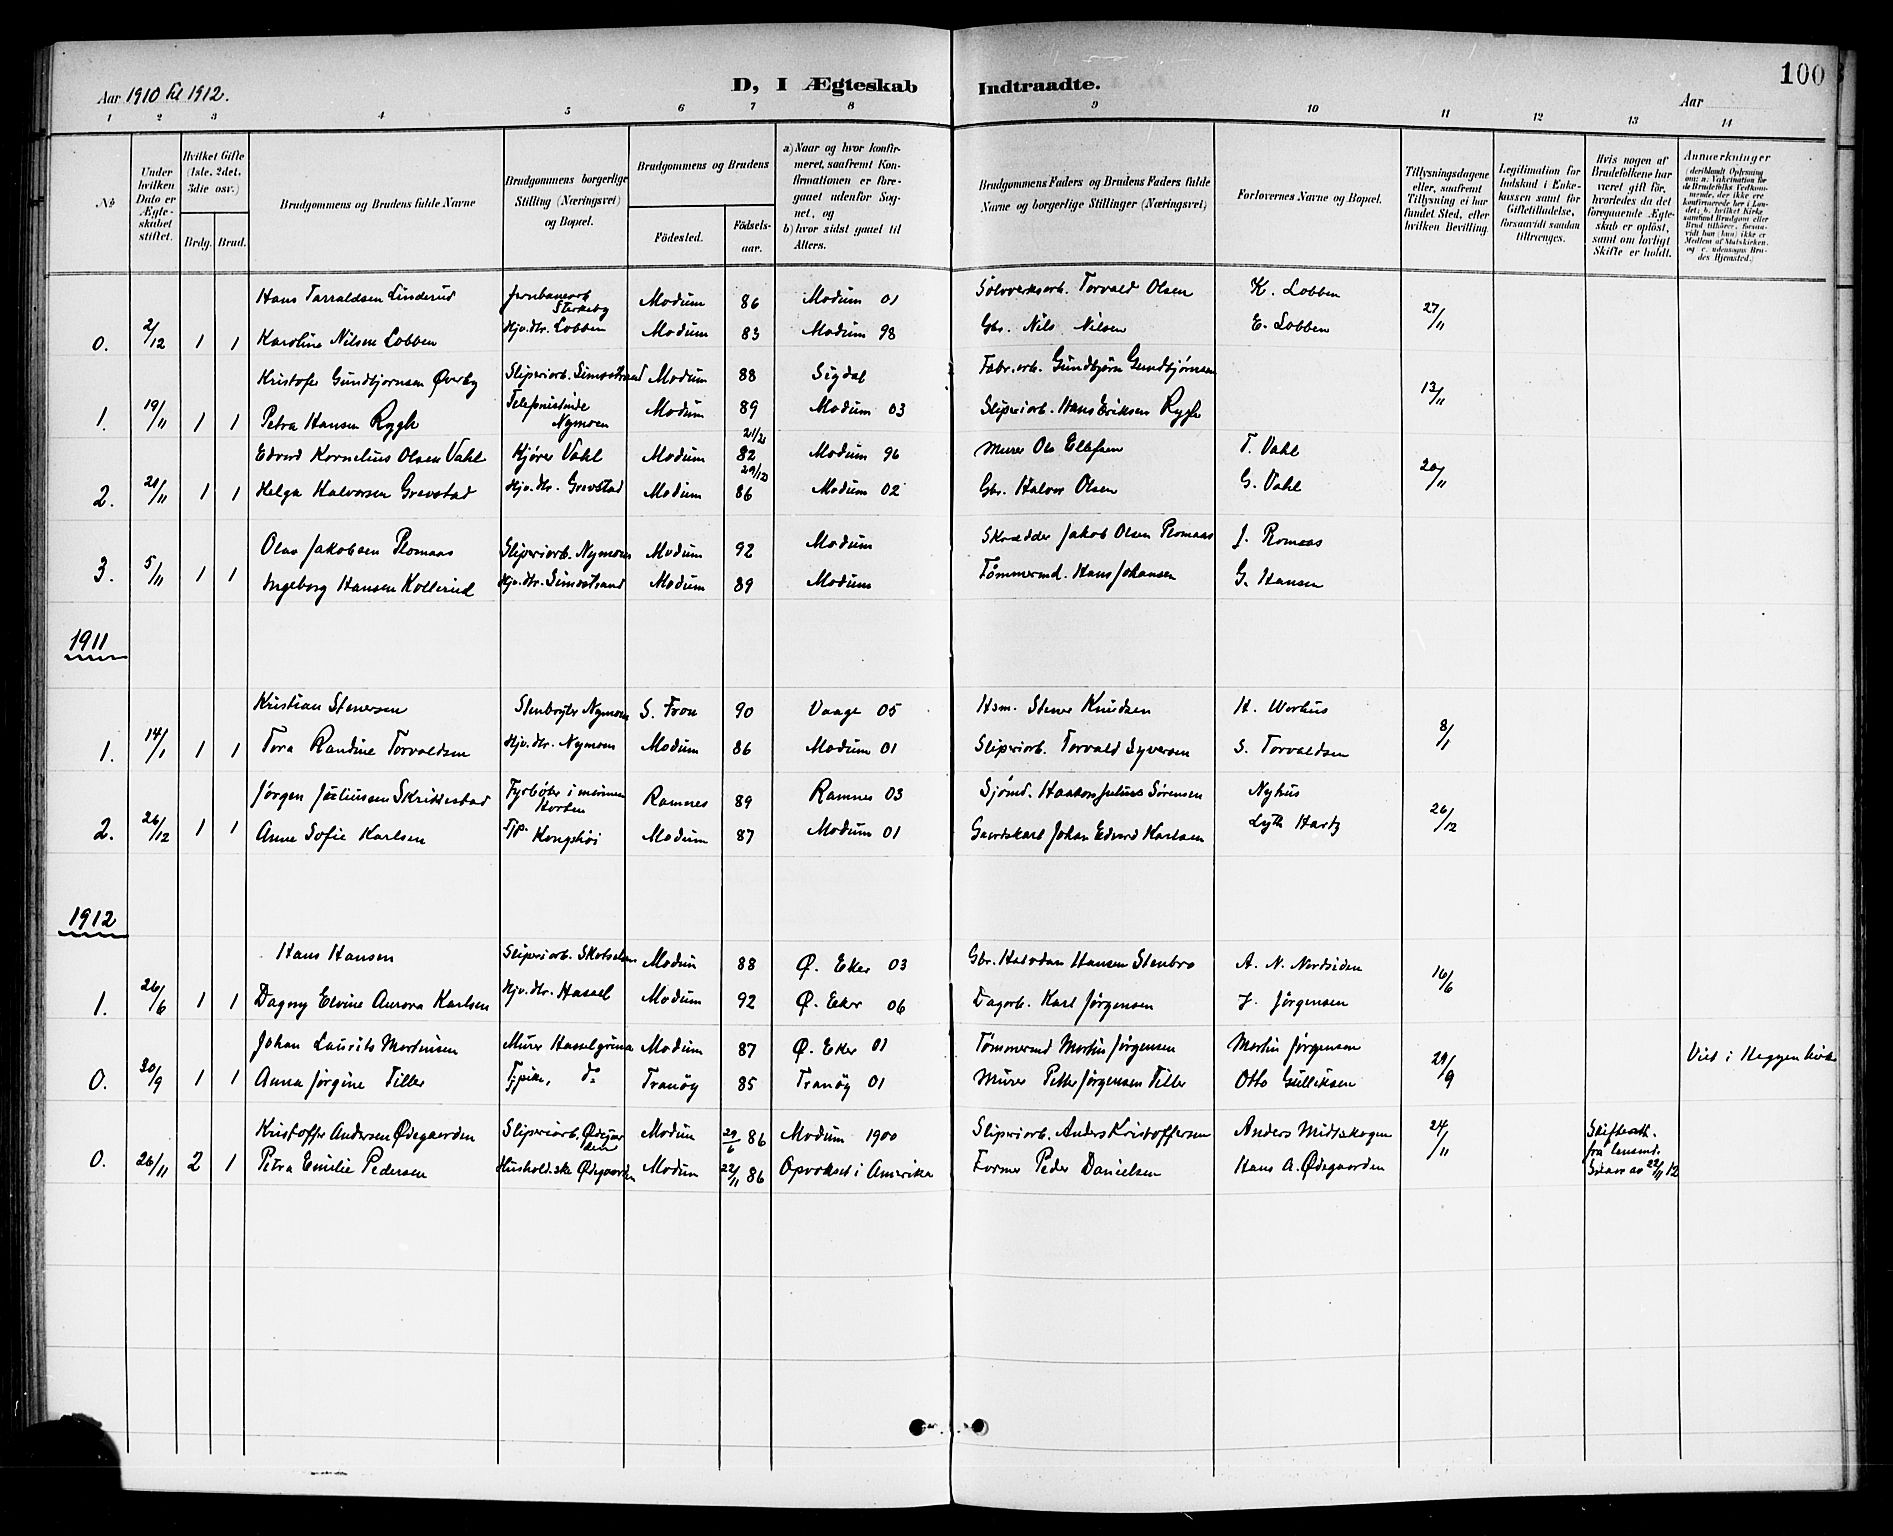 Aar 1910 til 1912.
D, I Ægteskab Indtraadte.
100
Aar
1 2 3 4 5 6 7 8 9 10 11 12 13 14
No
Under hvilken Dato er Ægteskabet stiftet.
Hvilket Gifte (1ste, 2det, 3die osv.)
Brdg. Brud.
Brudgommens og Brudens fulde Navne
Brudgommens borgerlige Stilling (Næringsvei) og Bopæl.
Brudgommens og Brudens
Fødested. Fødselsaar.
a) Naar og hvor konfirmeret, saafremt Konfirmationen er foregaaet udenfor Sognet, og
b) hvor sidst gaaet til Alters.
Brudgommens Faders og Brudens Faders fulde Navne og borgerlige Stillinger (Næringsvei)
Forlovernes Navne og Bopæl.
Tillysningsdagene eller, saafremt Tillysning ei har fundet Sted, efter hvilken Bevilling.
Legitimation for Indskud i Enkekassen samt for Giftetilladelse, forsaavidt saadan tiltrænges.
Hvis nogen af Brudefolkene har været gift før, hvorledes da det foregaaende Ægteskab er opløst, samt om lovligt Skifte er holdt.
Anmærkninger (deriblandt Oplysning om: a. Vakcination for de Brudefolks Vedkommende, der ikke ere konfirmerede her i Landet; b. hvilket Kirkesamfund Brudgom eller Brud tilhører, forsaavidt han (hun) ikke er Medlem af Statskirken, og c. udensogns Brudes Hjemsted.)
Hans Tarraldsen Linderud Jernbanearb. Sterkeby Modum 86 Modum 01 Sølvverksarb. Torvald Olsen K. Lobben 27/11
0. 2/12 1 1 Karoline Nilsen Lobben Hjv.dtr. Lobben Modum 83 Modum 98 Gbr. Nils Nilsen E. Lobben
Kristofer Gundbjørnsen Øverby Sliperiarb. Simostrand Modum 88 Sigdal Fabr.arb. Gundbjørn Gundbjørnsen 13/11
1. 19/11 1 1 Petra Hansen Rygh Telefonistinde Nymoen Modum 89 Modum 03 Sliperiarb. Hans Eriksen Rygh
Edvard Kornelius Olsen Vahl Kjører Vahl Modum 82 Modum 96 Murer Ole Ellefsen T. Vahl 20/11
2. 1 1 Helga Halvorsen Grevstad Hjv.dtr. Grevstad Modum 29/12 86 Modum 02 Gbr. Halvor Olsen G. Vahl
Olaf Jakobsen Romaas Sliperiarb. Nymoen Modum 92 Modum Skrædder Jakob Olsen Romaas J. Romaas
3. 5/11 1 1 Ingeborg Hansen Kollerud Hjv.dtr. Simostrand Modum 89 Modum Tømmermd. Hans Johansen G. Hansen
1911
Kristian Stenersen Stenbryter Nymoen S. Fron 90 Vaage 05 Hsm. Stener Knudsen H. Worhus 8/1
1. 14/1 1 1 Tora Randine Torvaldsen Hjv.dtr. Nymoen Modum 86 Modum 01 Sliperiarb. Torvald Syversen S. Torvaldsen
Jørgen Juliussen Skriddestad Fyrbøter i marinen Horten Ramnes 89 Ramnes 03 Sjømd. Haakon Julius Sørensen Nyhus 26/12
2. 26/12 1 1 Anna Sofie Karlsen Tjp. Kongshöi Modum 87 Modum 01 Gaardskarl Johan Edvard Karlsen Lyth Hartz
1912
Hans Hansen Sliperiarb. Skotselven Modum 88 Ø. Eker 03 Gbr. Halvdan Hansen Stenbro A. N. Nordsiden 16/6
1. 26/6 1 1 Dagny Elvine Aurora Karlsen Hjv.dtr. Hassel Modum 92 Ø. Eker 06 Dagarb. Karl Jørgensen J. Jørgensen
Johan Laurits Martinsen Murer Hasselgruva Modum 87 Ø. Eker 01 Tømmermd Martin Jørgensen Martin Jørgensen 29/9 Viet i Heggen kirke
0. 30/9 1 1 Anna Jørgine Tiller Tjpike, do Tranøy 85 Tranöy 01 Murer Petter Jørgensen Tiller Otto Gulliksen
Kristoffer Andersen Ødegaarden Sliperiarb. Ødegaarden Modum 29/6 86 Modum 1900 Sliperiarb. Anders Kristoffersen Anders Midtskogen 24/11 Skifteatt. fra lensmd.
0. 26/11 2 1 Petra Emilie Pedersen Hushold.ske Ødegaarden Modum 22/11 86 Opvokset i Amerika Former Peder Danielsen Hans A. Ødegaarden av 22/11 12